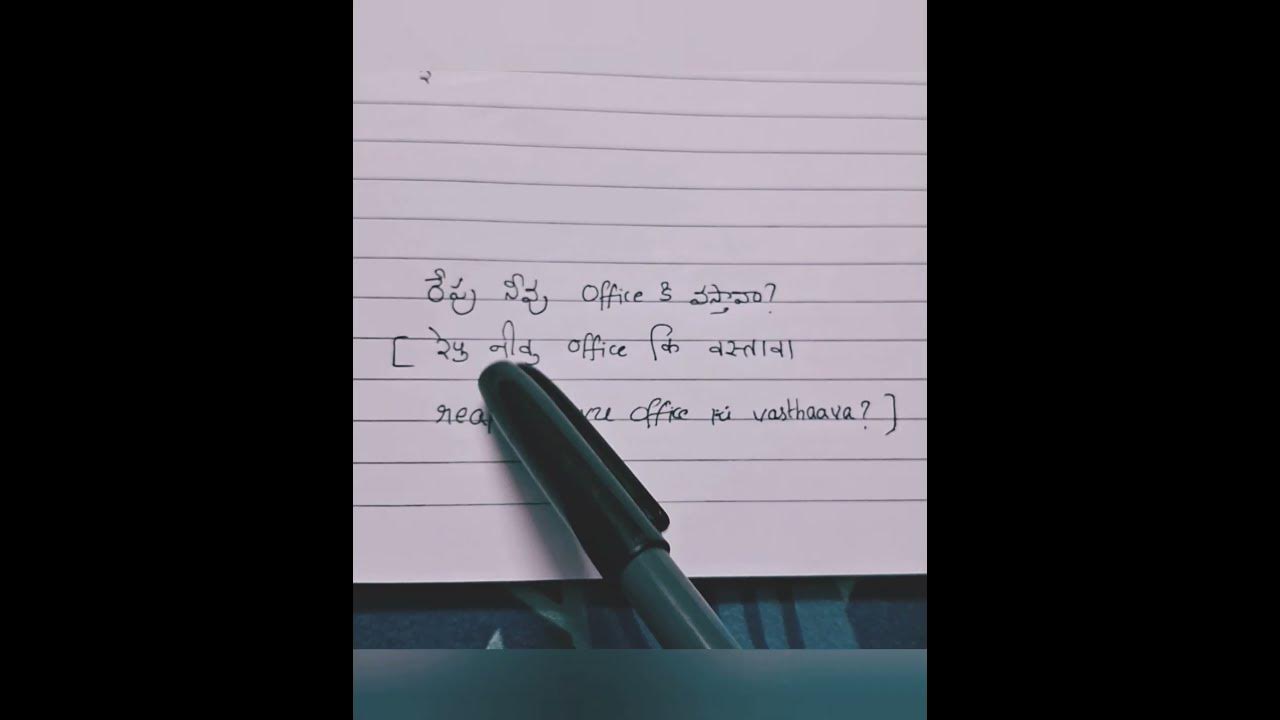 రేపు నీవు office కి వస్తావా?
[ रेपु नीवु office कि वस्तावा
office ki vasthaava? ]